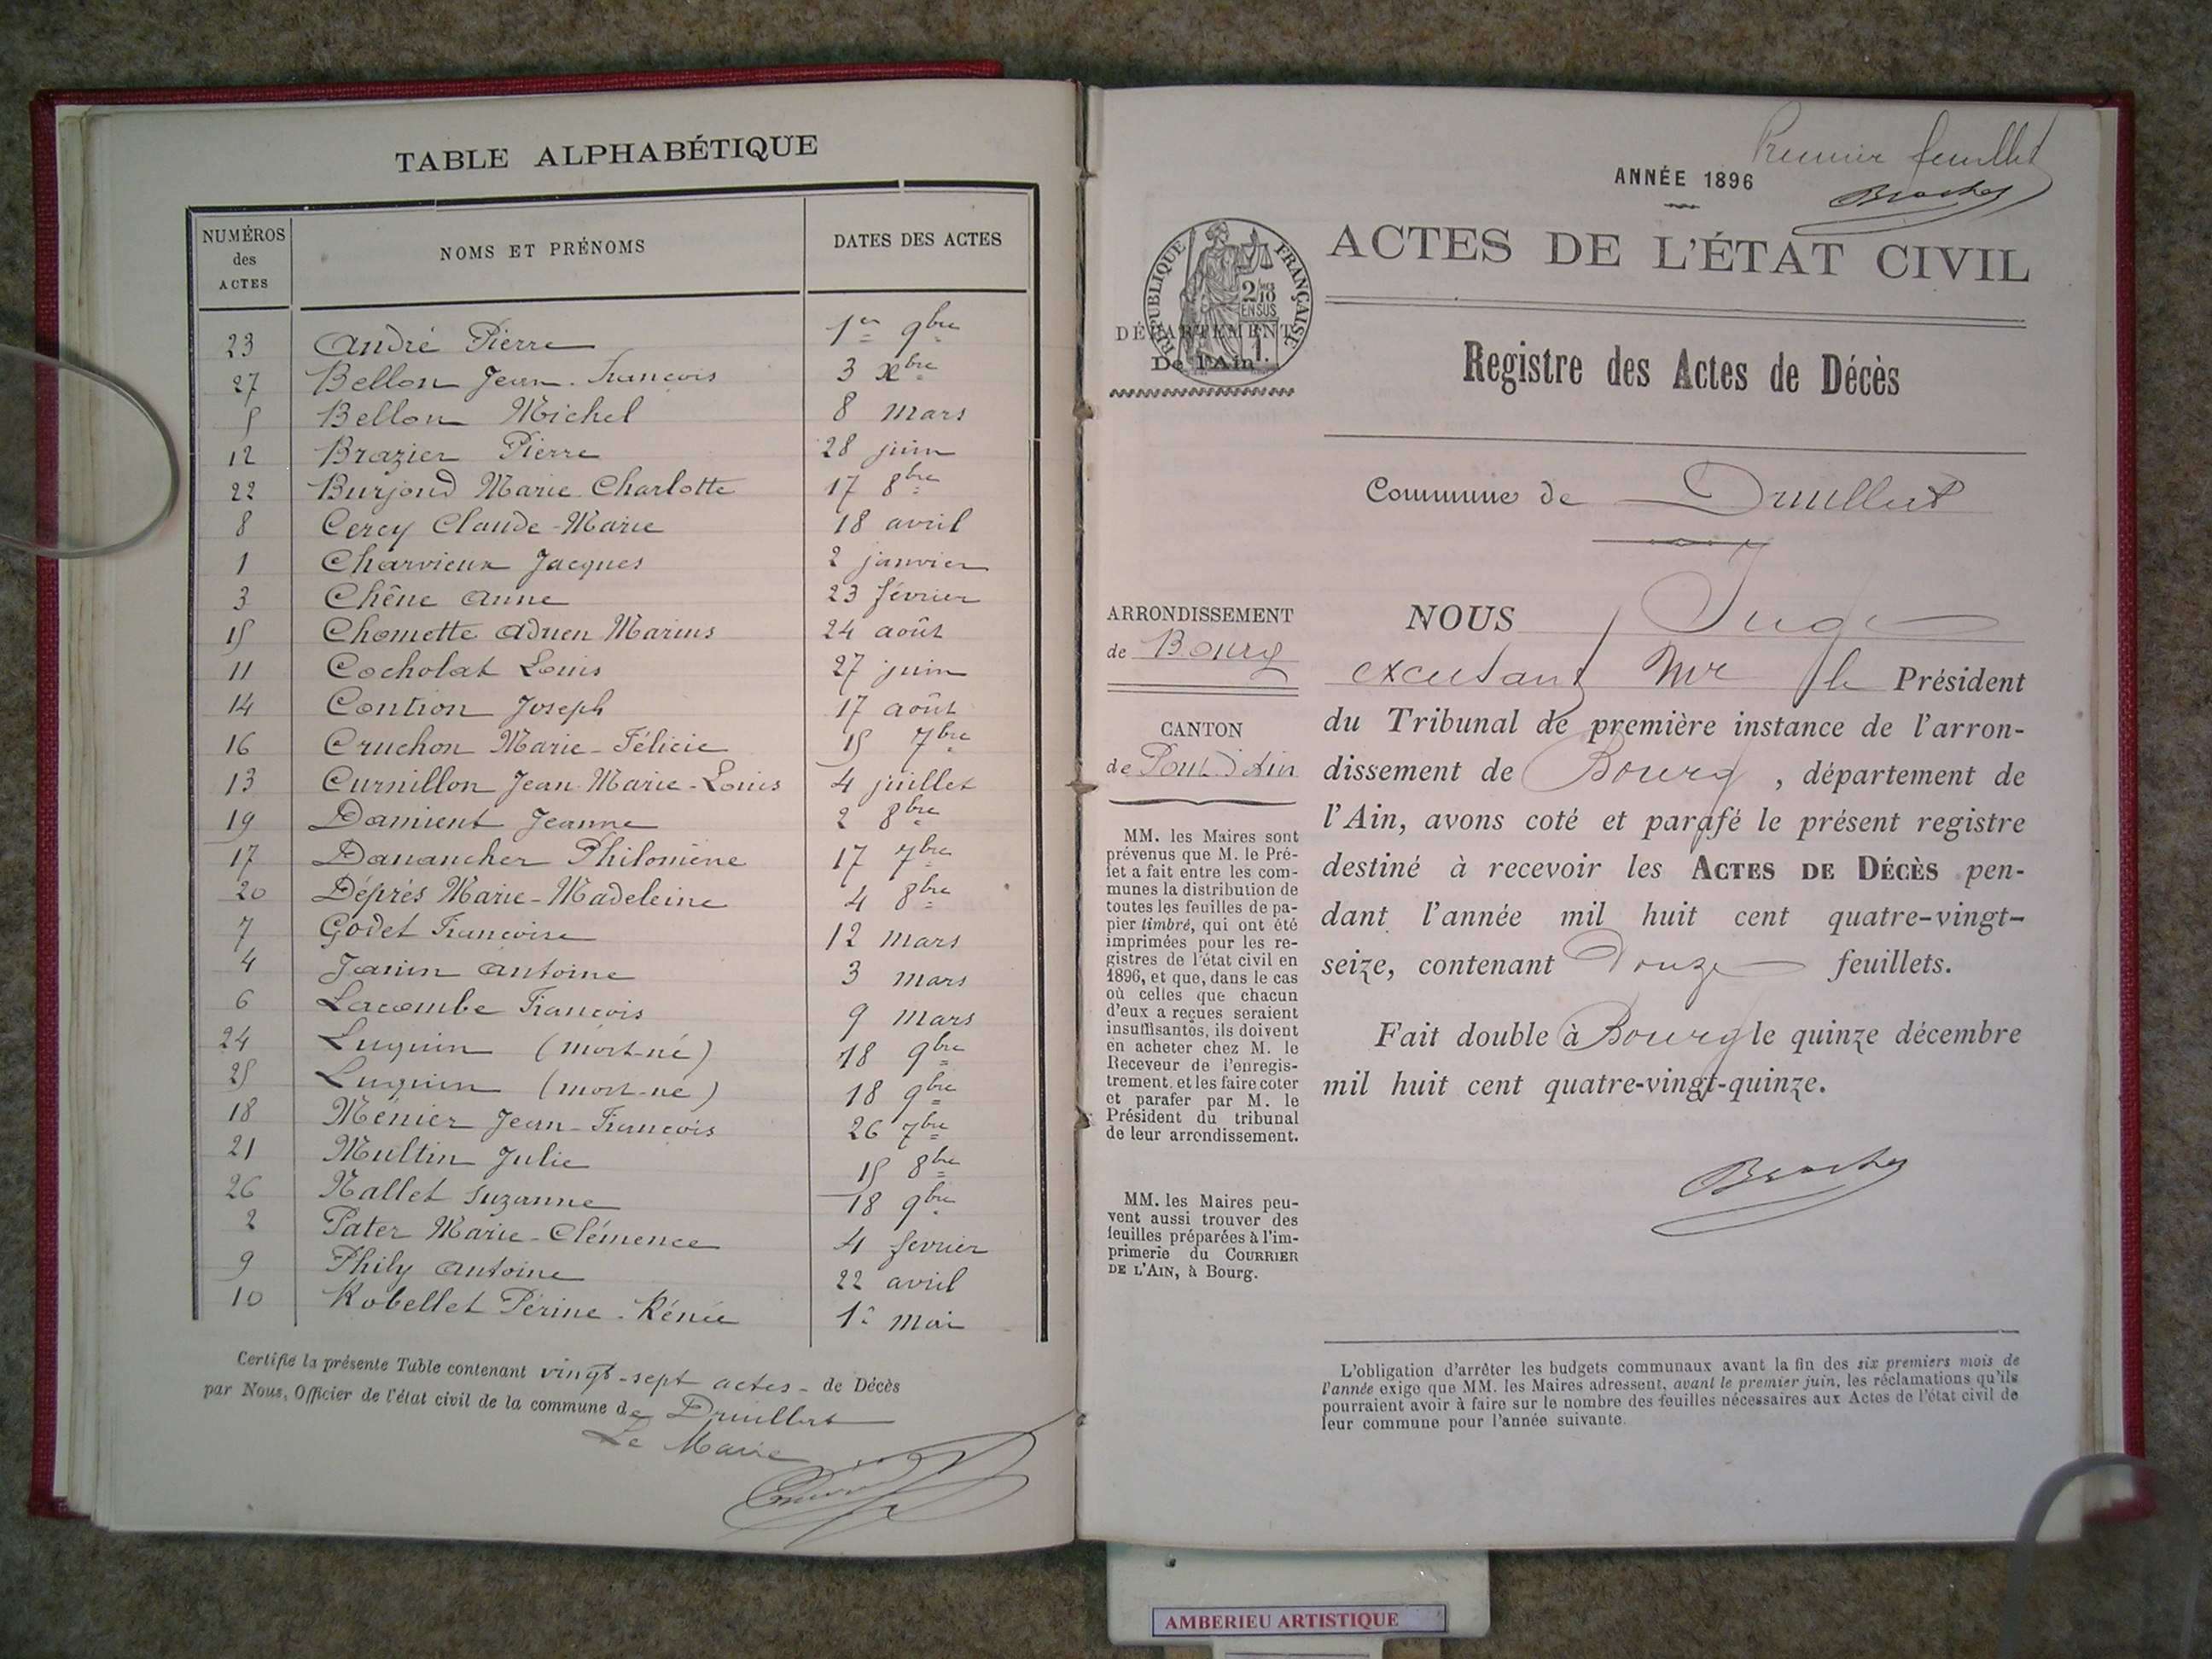 TABLE ALPHABÉTIQUE
NUMÉROS des ACTES NOMS ET PRÉNOMS DATES DES ACTES
23 André Pierre 1er 9bre
27 Bellon Jean-François 3 xbre
5 Bellon Michel 8 mars
12 Brazier Pierre 28 juin
22 Burjoud Marie Charlotte 17 8bre
8 Cercy Claude-Marie 18 avril
1 Charvieux Jacques 2 janvier
3 Chêne Anne 23 février
15 Chomette Adrien Marius 24 août
11 Cocholat Louis 27 juin
14 Contion Joseph 17 août
16 Cruchon Marie-Félicie 15 7bre
13 Curnillon Jean-Marie-Louis 4 juillet
19 Damient Jeanne 2 8bre
17 Danancher Philomène 17 7bre
20 Déprés Marie-Madeleine 4 8bre
7 Godet Francoise 12 mars
4 Janin Antoine 3 mars
6 Lacombe Francois 9 mars
24 Luquin (mort-né) 18 9bre
25 Luquin (mort-né) 18 9bre
18 Ménier Jean-Francois 26 7bre
21 Multin Julie 15 8bre
26 Nallet Suzanne 18 9bre
2 Pater Marie-Clémence 4 fevrier
9 Phily Antoine 22 avril
10 Robellet Périne-Rénée 1er mai
Certifié la présente Table contenant vingt-sept actes - de Décès
par Nous, Officier de l'état civil de la commune de Druillat
Le Maire
Premier feuillet
ANNÉE 1896
ACTES DE L'ÉTAT CIVIL
RÉPUBLIQUE FRANÇAISE
2/10 EN SUS
DÉPARTEMENT
De l'Ain
Registre des Actes de Décès
Commune de Druillat
ARRONDISSEMENT
de Bourg
CANTON
de Pont d'Ain
MM. les Maires sont
prévenus que M. le Pré-
fet a fait entre les com-
munes la distribution de
toutes les feuilles de pa-
pier timbré, qui ont été
imprimées pour les re-
gistres de l'état civil en
1896, et que, dans le cas
où celles que chacun
d'eux a reçues seraient
insuffisantes, ils doivent
en acheter chez M. le
Receveur de l'enregis-
trement, et les faire coter
et parafer par M. le
Président du tribunal
de leur arrondissement.
MM. les Maires peu-
vent aussi trouver des
feuilles préparées à l'im-
primerie du COURRIER
DE L'AIN, à Bourg.
NOUS Juge
excusant Mr le Président
du Tribunal de première instance de l'arron-
dissement de Bourg, département de
l'Ain, avons coté et parafé le présent registre
destiné à recevoir les ACTES DE DÉCÈS pen-
dant l'année mil huit cent quatre-vingt-
seize, contenant Douze feuillets.
Fait double à Bourg le quinze décembre
mil huit cent quatre-vingt-quinze.
L'obligation d'arrêter les budgets communaux avant la fin des six premiers mois de
l'année exige que MM. les Maires adressent, avant le premier juin, les réclamations qu'ils
pourraient avoir à faire sur le nombre des feuilles nécessaires aux Actes de l'état civil de
leur commune pour l'année suivante.
AMBERIEU ARTISTIQUE